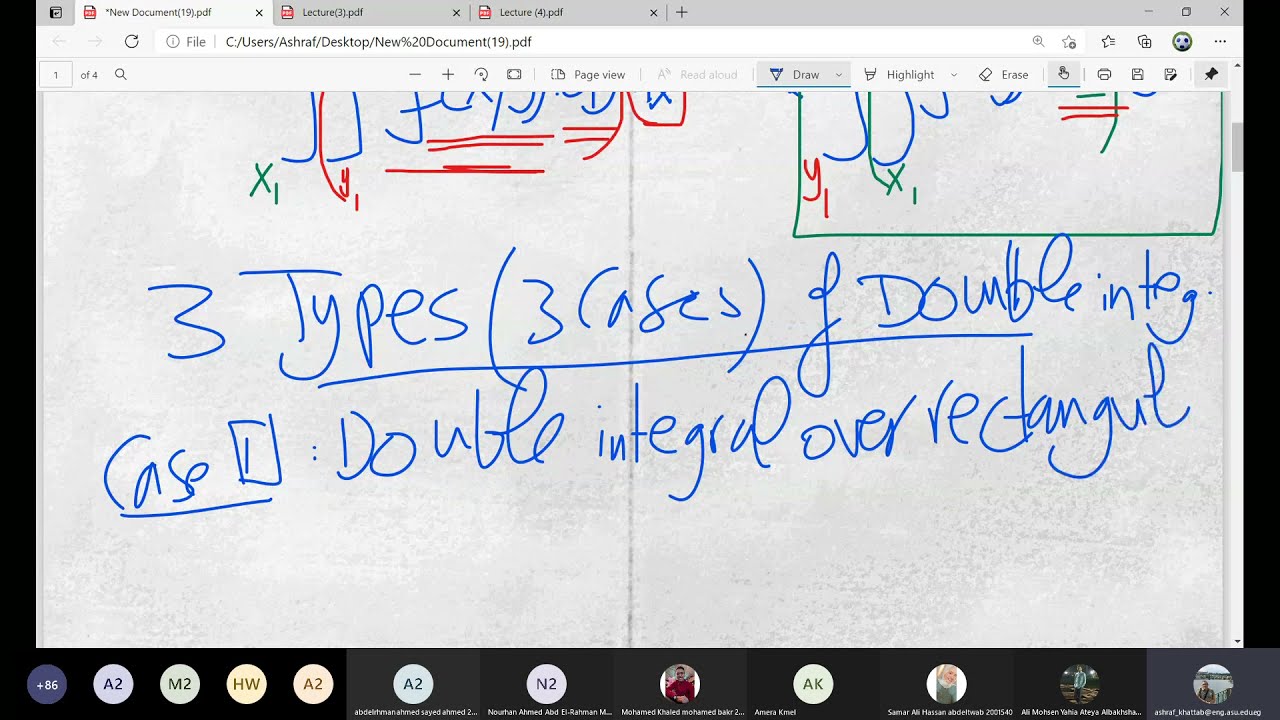 *New Document(19).pdf
Lecture(3).pdf
Lecture (4).pdf
File
C:/Users/Ashraf/Desktop/New%20Document(19).pdf
1 of 4
Page view
Read aloud
Draw
Highlight
Erase
x1 y1
y1 x1
3 Types (3 Cases) of Double integ.
Case 1 : Double integral over rectangul
+86
A2
M2
HW
A2
A2
N2
AK
abdelrhmanahmed sayed ahmed 2...
Nourhan Ahmed Abd El-Rahman M...
Mohamed Khaled mohamed bakr 2...
Amera Kmel
Samar Ali Hassan abdeltwab 2001540
Ali Mohsen Yahia Ateya Albakhsha...
ashraf_khattab@eng.asu.edu.eg